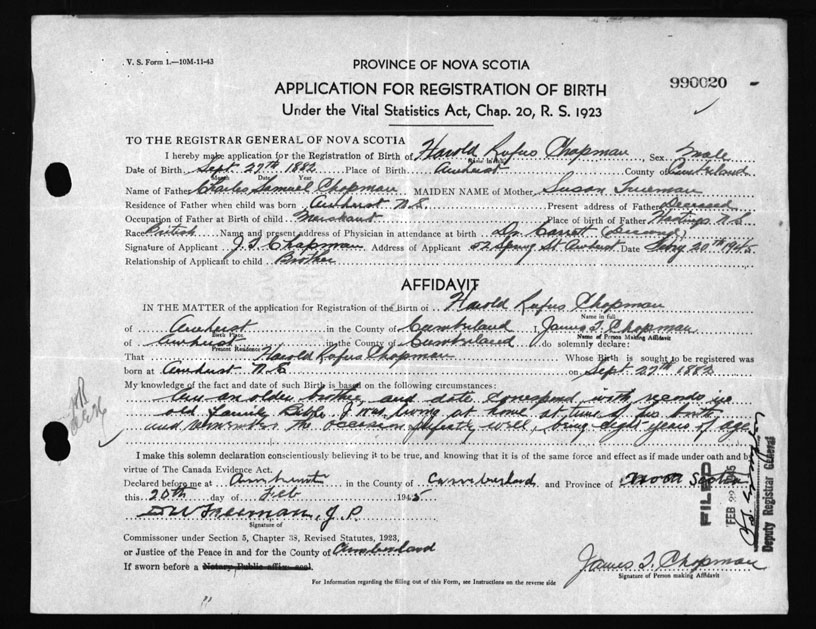 V. S. Form 1.—10M-11-43
PROVINCE OF NOVA SCOTIA
990020
APPLICATION FOR REGISTRATION OF BIRTH
Under the Vital Statistics Act, Chap. 20, R. S. 1923
TO THE REGISTRAR GENERAL OF NOVA SCOTIA
I hereby make application for the Registration of Birth of Harold Rufus Chapman, Sex Male
Name in full
Date of Birth Sept 27th 1882 Place of Birth Amherst County of Cumberland
Month Date Year
Name of Father Charles Samuel Chapman MAIDEN NAME of Mother Susan
Residence of Father when child was born Amherst N.S. Present address of Father Deceased
Occupation of Father at Birth of child Merchant Place of birth of Father Hastings N.S.
Race British Name and present address of Physician in attendance at birth Dr.
Signature of Applicant Chapman Address of Applicant 52 Spring St Amherst Date 20th 1945
Relationship of Applicant to child Brother
AFFIDAVIT
IN THE MATTER of the application for Registration of the Birth of Harold Rufus Chapman
Name in full
of Amherst in the County of Cumberland, James Chapman
Birth Place Name of Person Making Affidavit
of Amherst in the County of Cumberland do solemnly declare:
Present Residence
That Harold Rufus Chapman Whose Birth is sought to be registered was
born at Amherst N.S. on Sept. 27th 1882
My knowledge of the fact and date of such Birth is based on the following circumstances:
an older brother, and date correspond with records in
old Family Bible. I was living at home at time of his birth
and remember the occasion perfectly well, being eight years of age
I make this solemn declaration conscientiously believing it to be true, and knowing that it is of the same force and effect as if made under oath and by
virtue of The Canada Evidence Act.
Declared before me at Amherst in the County of Cumberland and Province of Nova Scotia
this 20th day of Feb 1945
Freeman, J.P.
Signature of
Commissioner under Section 5, Chapter 38, Revised Statutes, 1923,
or Justice of the Peace in and for the County of Cumberland
If sworn before a Notary Public affix seal.
James Chapman
Signature of Person making Affidavit
For Information regarding the filling out of this Form, see Instructions on the reverse side
FILED
FEB 22 1945
Deputy Registrar General